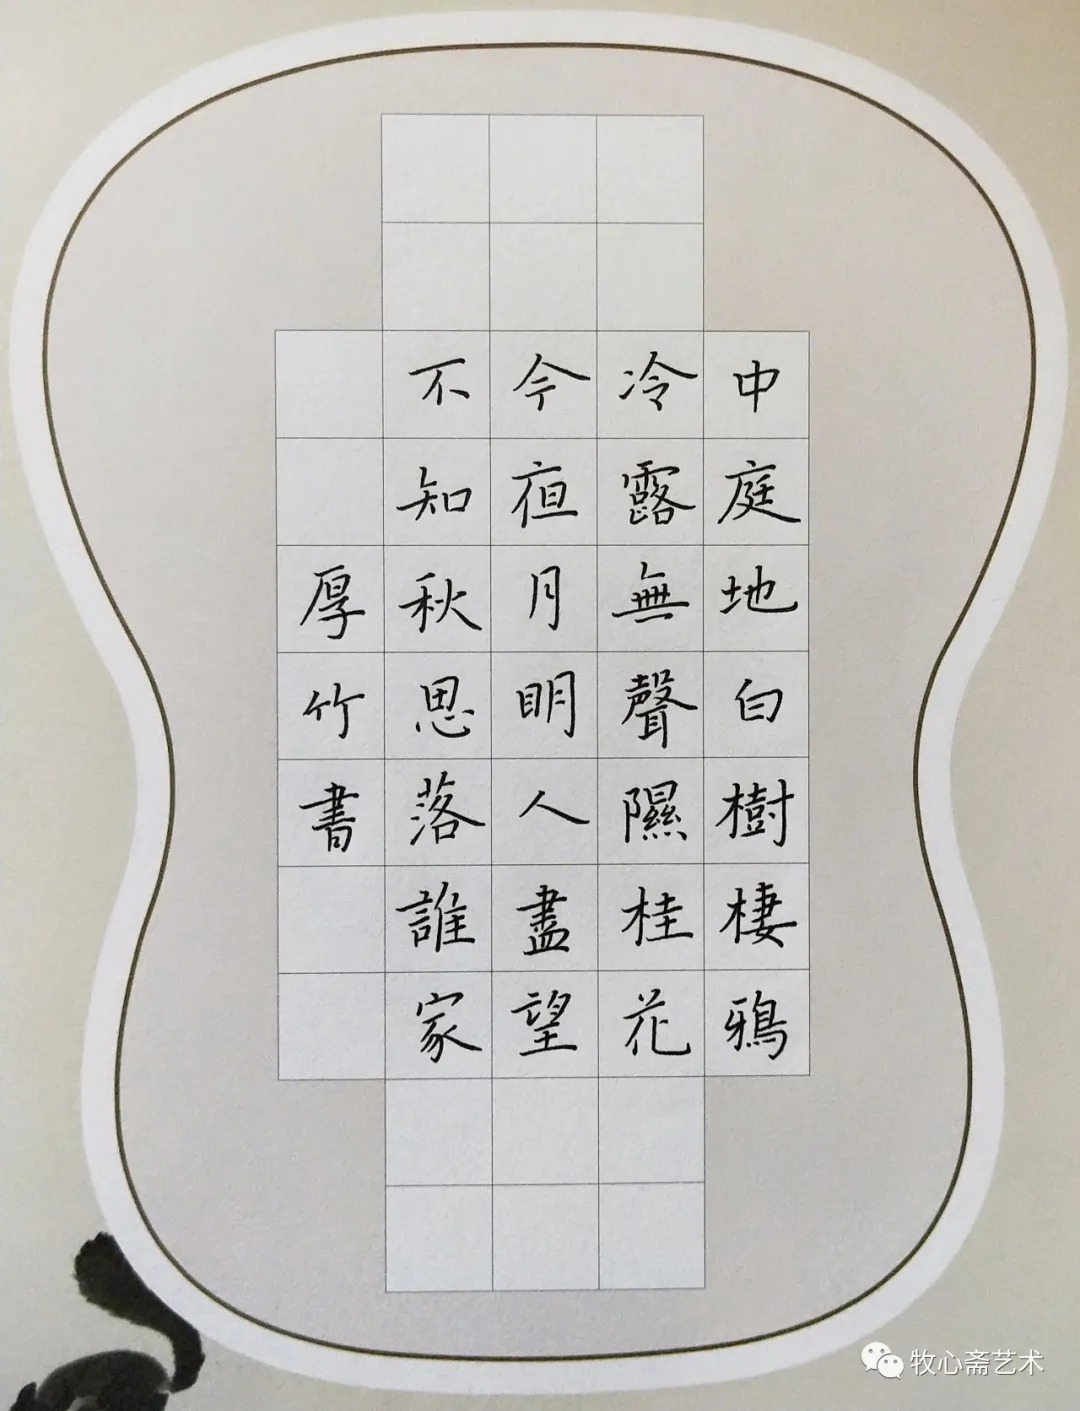 中庭地白樹棲鴉
冷露無聲隰桂花
今夜月明人盡望
不知秋思落誰家
厚竹書
牧心斋艺术